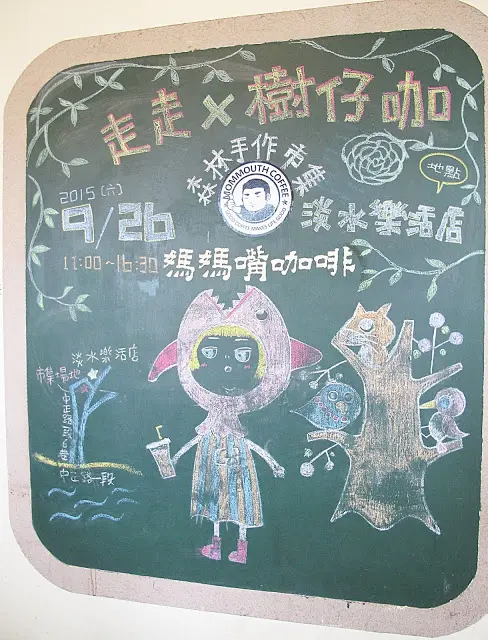 走走×樹仔咖
森林手作市集
地點
MOMMOUTH COFFEE
2015 (六)
9/26
淡水樂活店
11:00~16:30
媽媽嘴咖啡
淡水樂活店
市集場地
中正路
中正路一段